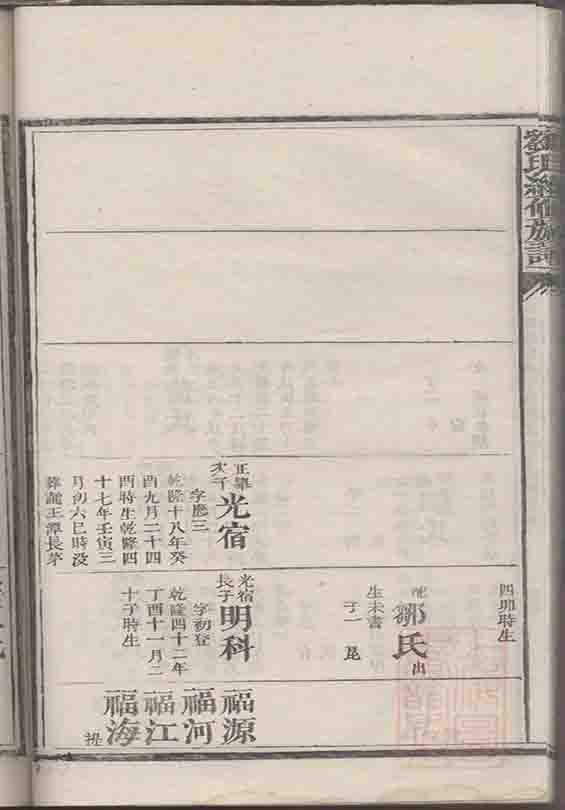 劉氏續修族譜
四卯時生
配鄒氏出
生未書
子一 昆
正肇
次子光宿
字應三
乾隆十八年癸
酉九月二十四
酉時生乾隆四
十七年壬寅三
月初六巳時没
葬龍王潭長茅
光宿
長子明科
字初登
乾隆四十二年
丁酉十一月二
十子時生
福源
福河
福江
福海